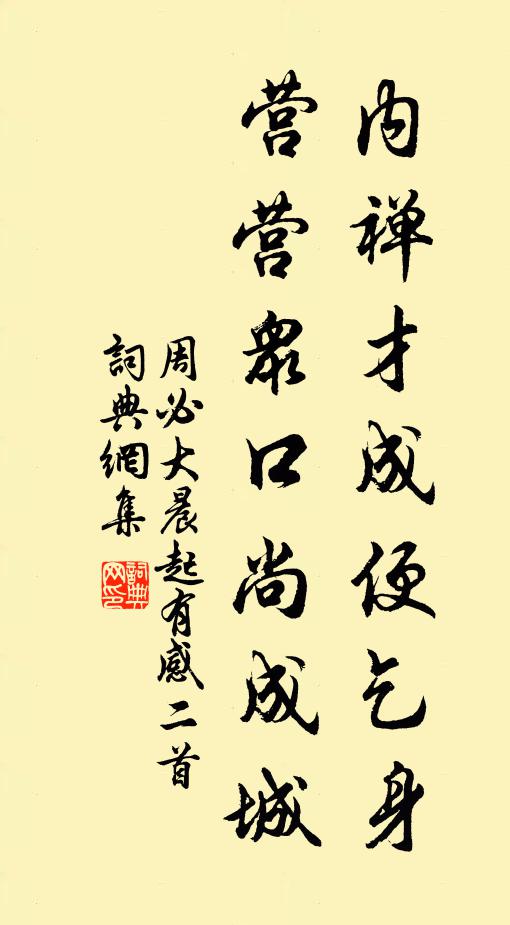 内禅才成便乞身
营营眾口尚成城
周必大晨起有感二首
詞典網集
詞典网印